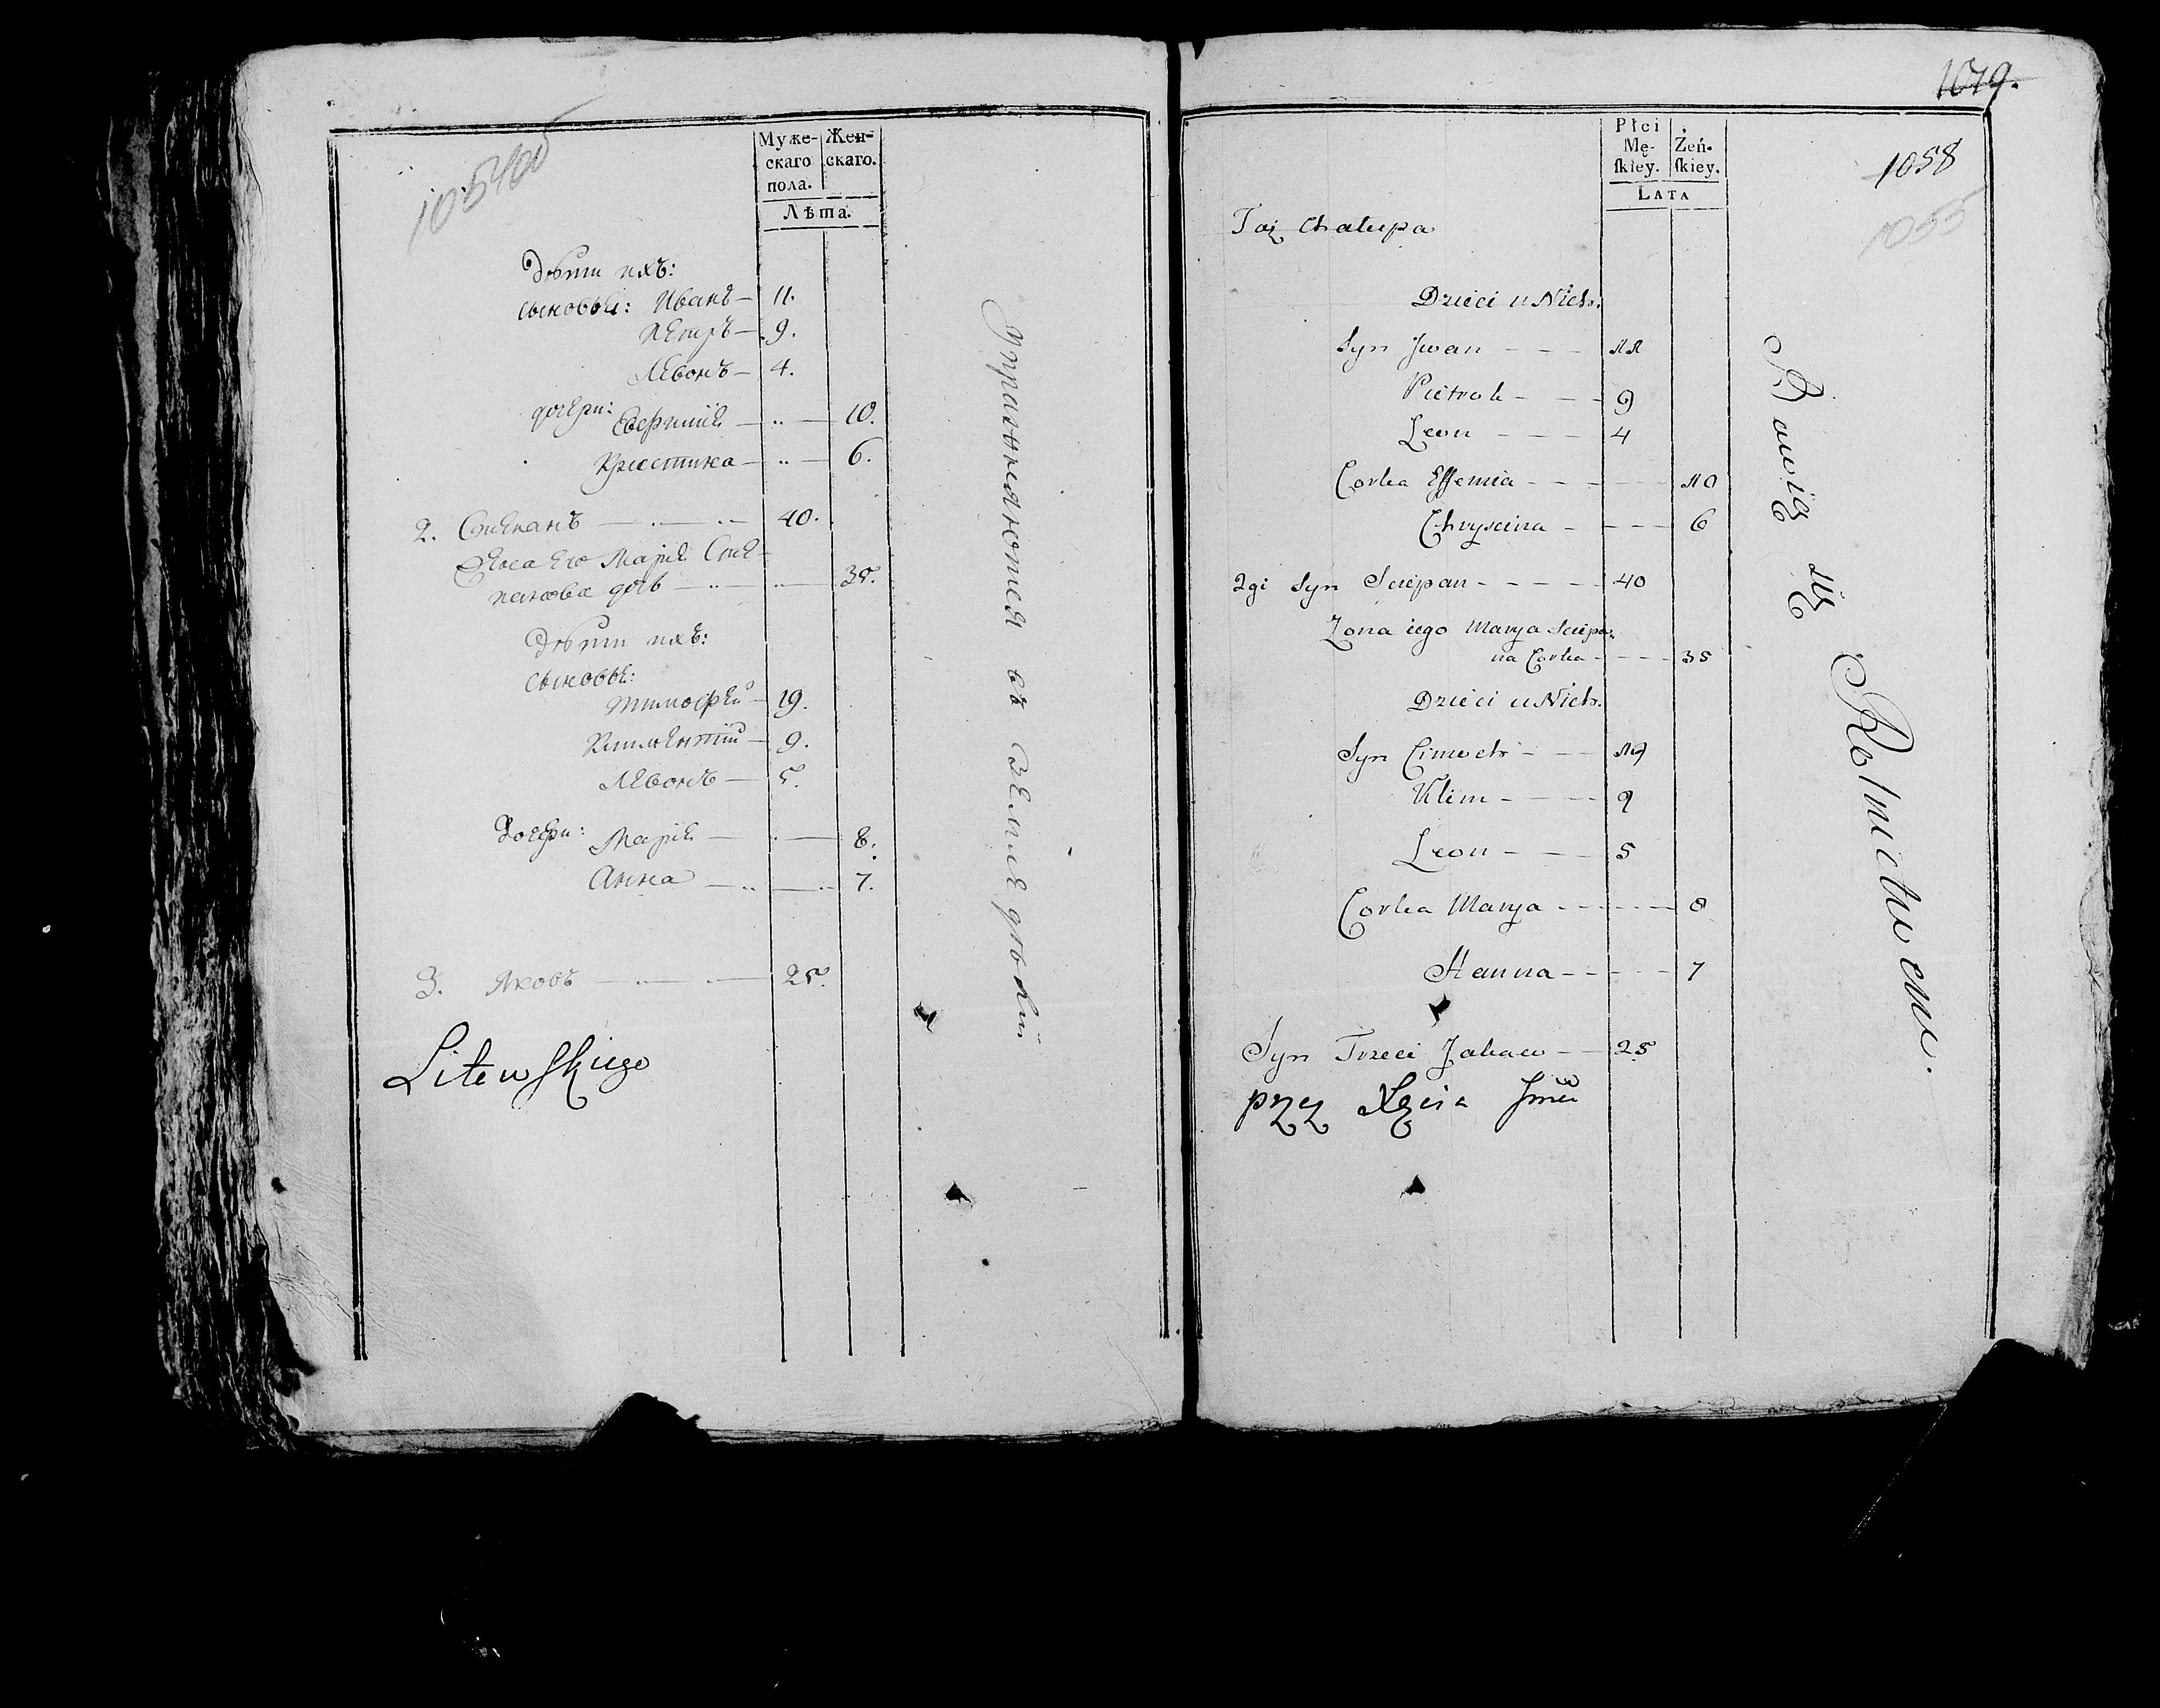 1054об
Муже-
скаго
пола.
Жен-
скаго.
Лѣта.
Дѣти ихъ:
сыновья: Иванъ — 11.
Петръ — 9.
Левонъ — 4.
дочери: Евфимія — .. — 10.
Кристина — .. — 6.
2. Степанъ — .. — .. 40.
Жена его Марья Сте-
панова дочь — .. — .. — 35.
Дѣти ихъ:
сыновья:
Тимофей — 19.
Климентій — 9.
Левонъ — 5.
Дочери: Марья — . — 8.
Анна — .. — .. 7.
3. Яковъ — .. — . — 25.
Litewskiego
Упражняются въ Земледѣліи.
1079.
1058
1055
Płci
Mę-
ſkiey.
Żeń-
ſkiey.
LATA
Taż Chałupa
Dzieci u Nich.
Syn Jwan - - - 11
Pietrok - - - 9
Leon - - - 4
Corka Effemia - - - 10
Chryscina - - - 6
2gi Syn Sciepan - - - - 40
Zona iego Marya Sciepa-
na Corka - - - 35
Dzieci u Nich.
Syn Cimoch - - - 19
Klim - - - 9
Leon - - - 5
Corka Marya - - - 8
Hanna - - - 7
Syn Trzeci Jakow - - 25
przy Xięcia Jmci
Bawią się Rolnictwem.